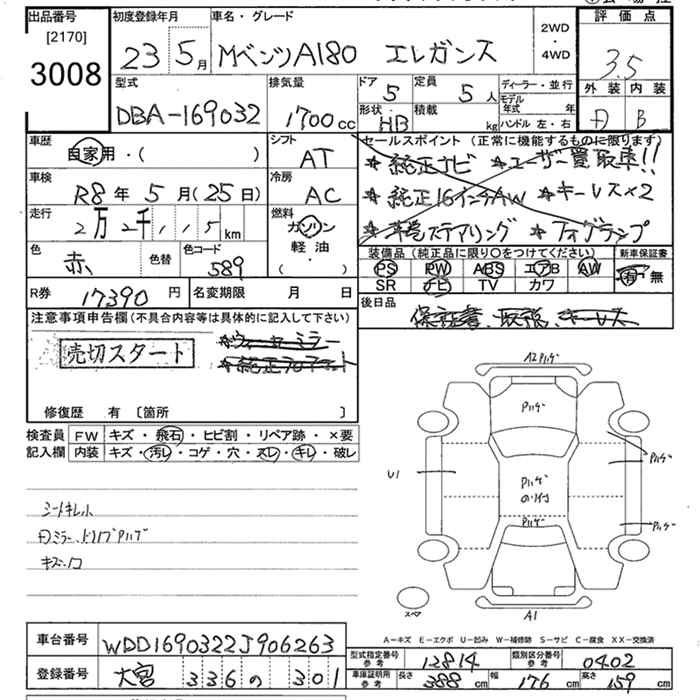 出品番号 初度登録年月 車名・グレード 2WD・4WD 評価点
[2170]
3008 23 5月 MベンツA180 エレガンス 3.5
外装 内装
型式 排気量 ドア 定員 ディーラー・並行
5 5人 モデル年式 年
DBA-169032 1700cc 形状 HB 積載 kg ハンドル 左・右 B
車歴 シフト セールスポイント (正常に機能するものに限ります)
自家用・( ) AT ★純正ナビ ★ユーザー買取車!!
車検 冷房
R8年 5月(25日) AC ★純正16インチAW ★キーレス×2
走行 燃料
2万2千,,5km ガソリン ★本革ステアリング ★フォグランプ
色 色替 色コード 軽油・
赤 589 ( )
装備品 (純正品に限り○をつけてください) 新車保証書
PS PW ABS エアB AW 有・無
SR ナビ TV カワ
R券 17390円 名変期限 月 日 後日品
保証書、取説、キーレス
注意事項申告欄 (不具合内容等は具体的に記入して下さい)
売切スタート ★ウィンカーミラー
修復歴 有 〔箇所 〕
検査員 FW キズ・飛石・ヒビ割・リペア跡・×要
記入欄 内装 キズ・汚レ・コゲ・穴・スレ・キレ・破レ
A2 Pハゲ
Pハゲ
U1 Pハゲ
Pハゲ
Pハゲ
Pハゲ
シートキレ
キズ・凹
スペア A1
A-キズ E-エクボ U-凹み W-補修跡 S-サビ C-腐食 XX-交換済
車台番号 WDD1690322J906263
型式指定番号 参考 12814 類別区分番号 参考 0402
登録番号 大宮 336 の 301
車庫証明用 参考 長さ 388cm 幅 176cm 高さ 159cm